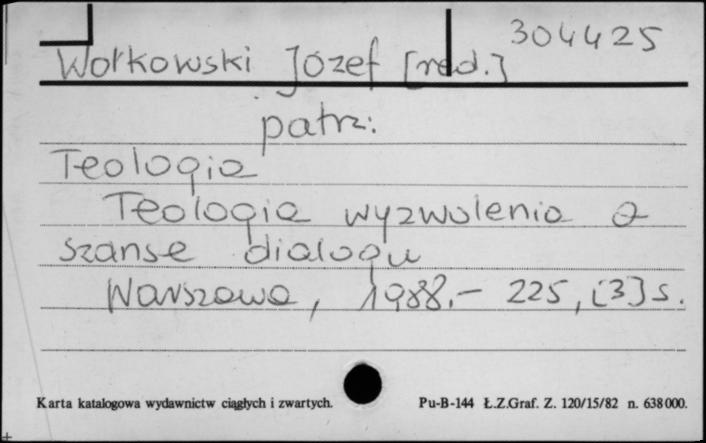 304425
Wołkowski Józef [red.]
patrz:
Teologia
Teologia wyzwolenia a
szanse dialogu
Warszawa, 1988.- 225, [3] s.
Karta katalogowa wydawnictw ciągłych i zwartych. Pu-B-144 Ł.Z.Graf. Z. 120/15/82 n. 638000.